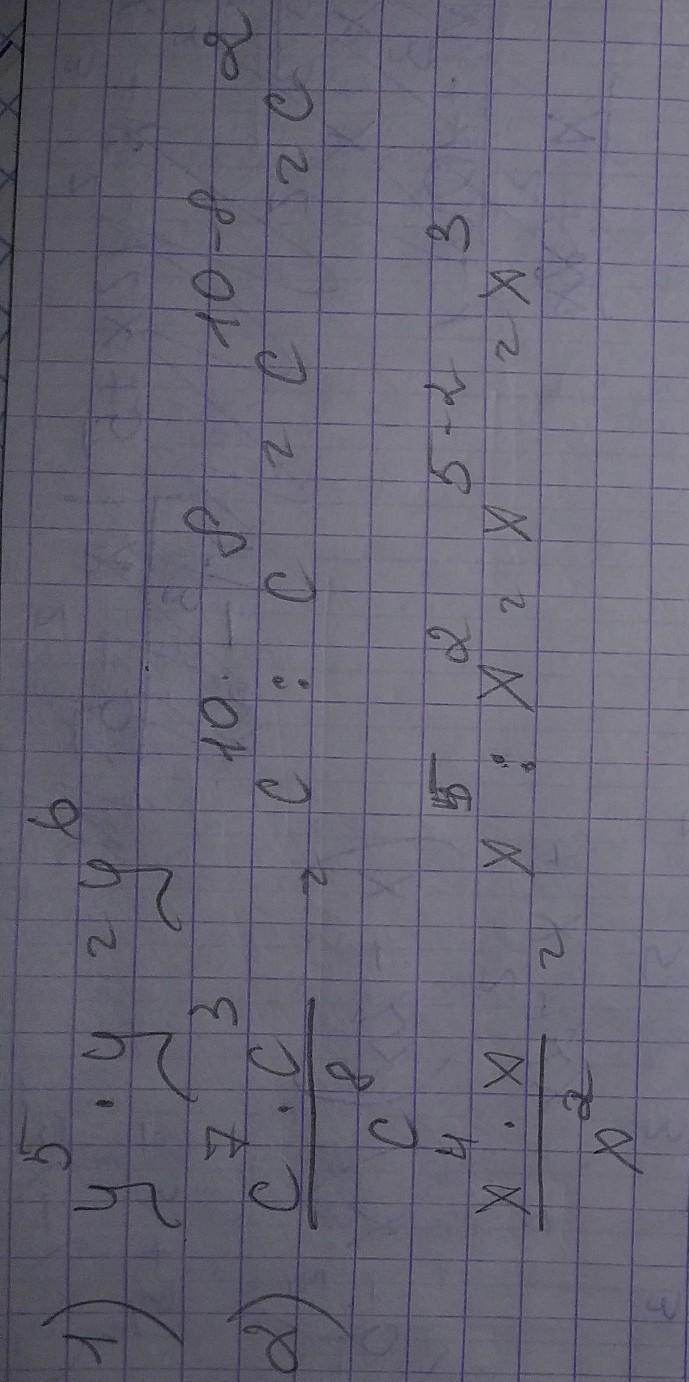 1) y⁵ · y = y⁶
2) c⁷ · c³ / c⁸ = c¹⁰ : c⁸ = c¹⁰⁻⁸ = c²
x⁴ · x / x² = x⁵ : x² = x⁵⁻² = x³